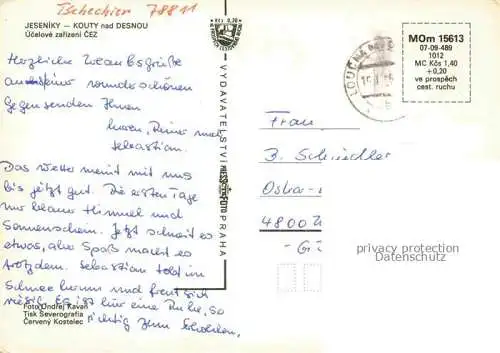 Tschechien 78811
JESENÍKY — KOUTY nad DESNOU
Účelové zařízení ČEZ
Herzliche Urlaubsgrüße
aus einer wunderschönen
Gegend senden Ihnen
Rainer und
Sebastian.
Das Wetter meint mit uns
bis jetzt gut. Die ersten Tage
nur blauer Himmel und
Sonnenschein. Jetzt schneit es
etwas, aber Spaß macht es
trotzdem. Sebastian tobt im
Schnee herum und freut sich
riesig. Es ist hier eine Ruhe, so
richtig zum Erholen.
Foto Ondřej Kavan
Tisk Severografia
Červený Kostelec
VYDAVATELSTVÍ PRESSFOTO PRAHA
Kčs 0,20
LOUČNÁ NAD
MOm 15613
07-09-489
1012
MC Kčs 1,40
+0,20
ve prospěch
cest. ruchu
Frau
B. Schindler
Oskar-
4800
privacy protection
Datenschutz